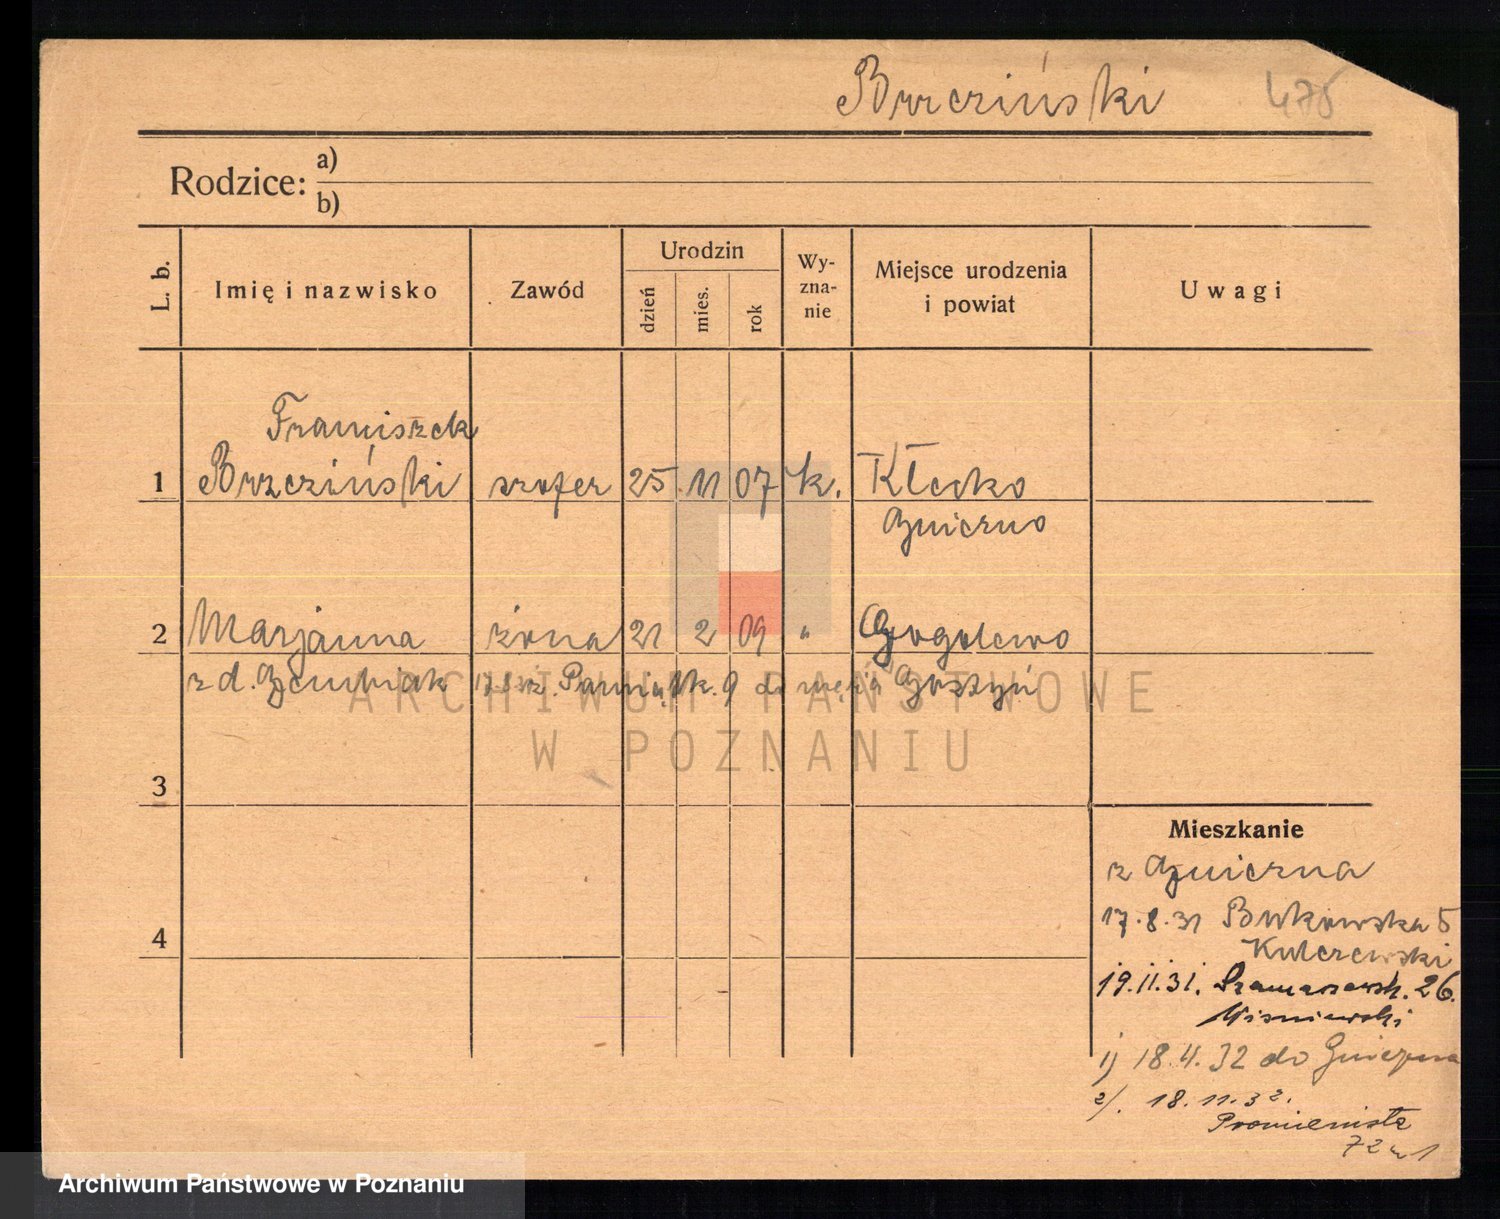 Brzeziński 475
Rodzice: a)
b)
L. b.
Imię i nazwisko
Zawód
Urodzin
dzień
mies.
rok
Wy-
zna-
nie
Miejsce urodzenia
i powiat
Uwagi
Franciszek
1 Brzeziński szofer 25. 11 07 k. Kłecko
Gniezno
2 Marjanna żona 21 2 09 " Gogolewo
z d. 9 do męża Gostyń
3
4
Mieszkanie
z Gniezna
17.8.31 Bukowska 5
Kulczewski
19.11.31. 26.
Wiśniewski
1) 18.4.32 do Gniezna
2). 18.11.32.
Promienista
72 m 1
ARCHIWUM PAŃSTWOWE
W POZNANIU
Archiwum Państwowe w Poznaniu